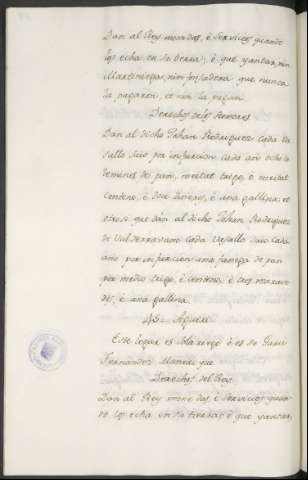 Dan al Rey monedas, é servicios quando
los echa en su tierra; é que yantar, nin
Martiniega, nin fonsadera que nunca
la pagaron, et non la pagan.
Derechos de los Señores
Dan al dicho Johan Rodriguez cada va
sallo suio por infurcion cada año ocho ce
lemines de pan, meitat trigo, é meitat
centeno, é dos dineros, é una gallina: et
otrosi que dan al dicho Johan Rodriguez
de Valderravano cada vasallo suio cada
año por infurcion una fanega de pan
por medio trigo, é centeno, é tres marave
dis, é una gallina.
45.
Este logar es solariego é es de Garci
Fernandez Manrrique
Derechos del Rey
Dan al Rey monedas, é servicios quan
do los echa en su tierra é que yantar,